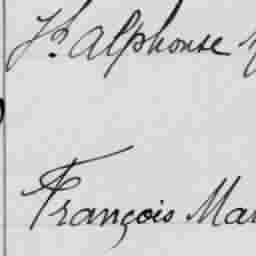 Jh. Alphonse
François Mar